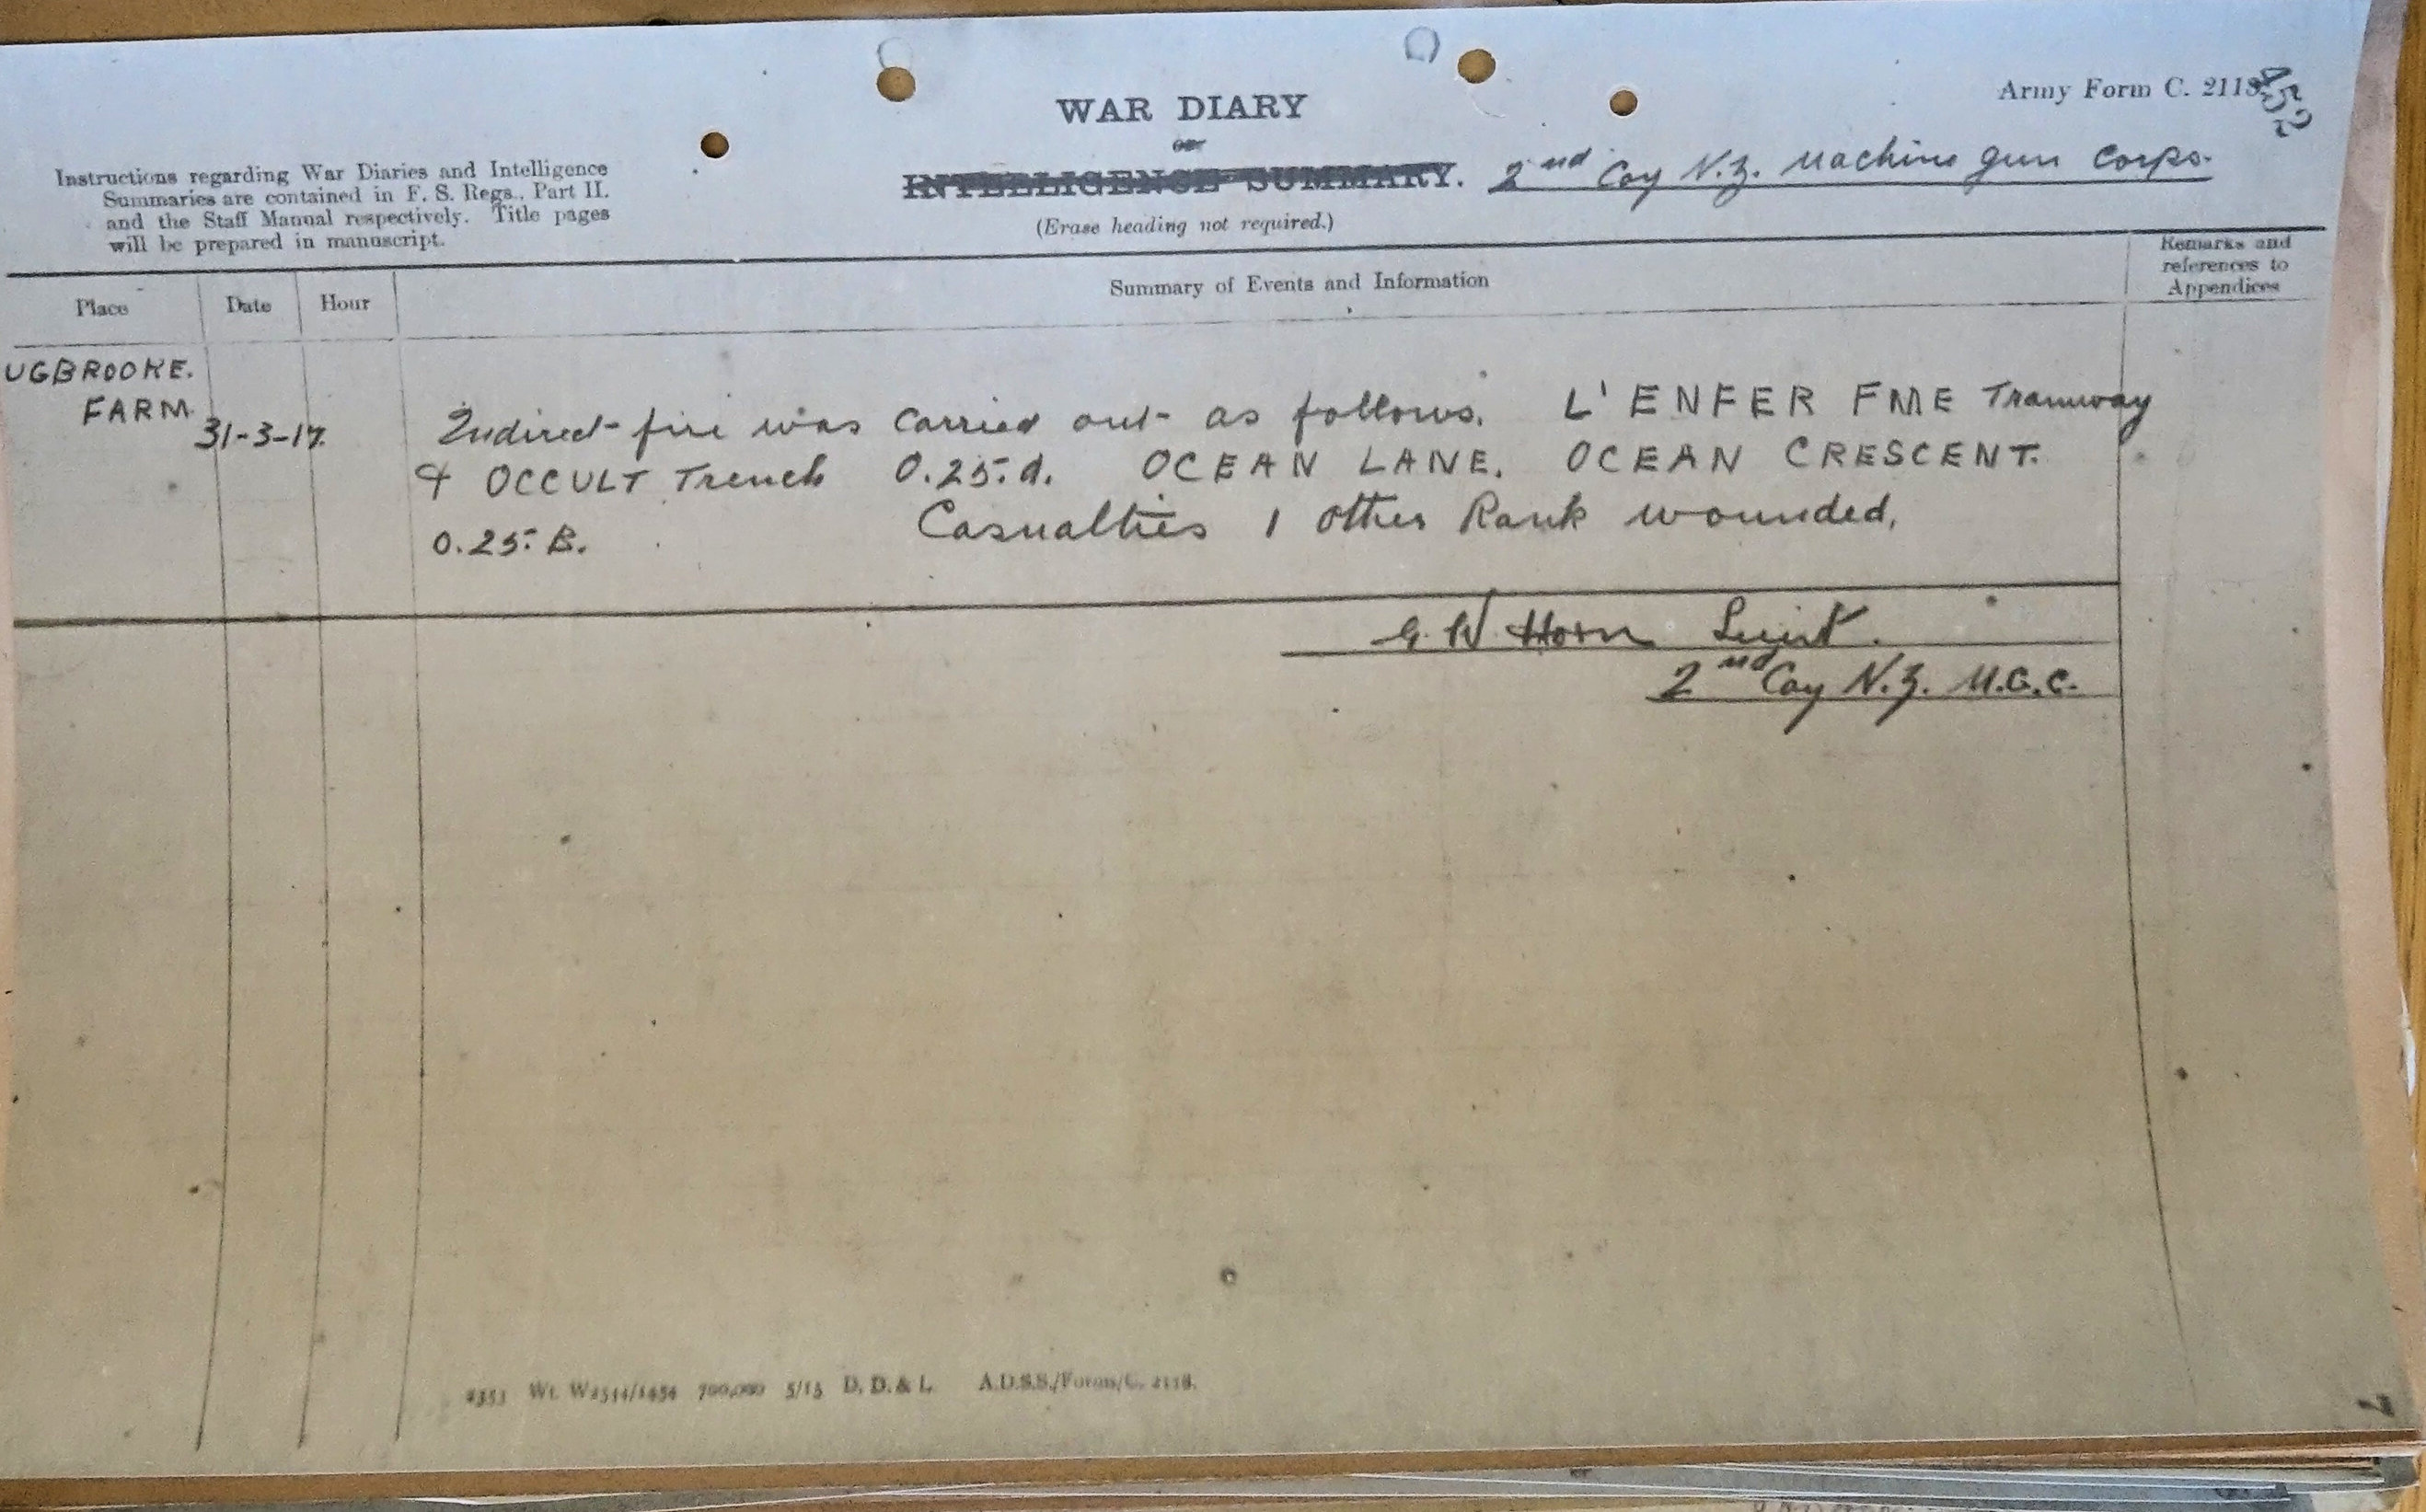 Army Form C. 2118
452
WAR DIARY
or
INTELLIGENCE SUMMARY. 2nd Coy N.Z. Machine Gun Corps.
(Erase heading not required.)
Instructions regarding War Diaries and Intelligence
Summaries are contained in F. S. Regs., Part II.
and the Staff Manual respectively. Title pages
will be prepared in manuscript.
Place Date Hour Summary of Events and Information Remarks and
references to
Appendices
UGBROOKE.
FARM
31-3-17. Indirect fire was carried out as follows. L'ENFER FME Tramway
& OCCULT Trench O.25.d. OCEAN LANE. OCEAN CRESCENT.
O.25.B. Casualties 1 Other Rank wounded.
G. W. Horn Lieut.
2nd Coy N.Z. M.G.C.
Wt. W2544/1454 700,000 5/15 D. D. & L. A.D.S.S./Forms/C. 2118.
7